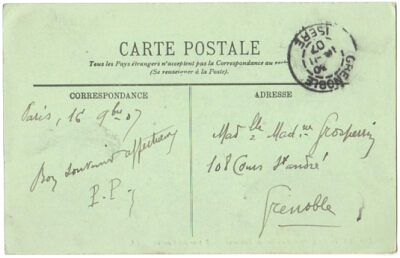 CARTE POSTALE
Tous les Pays étrangers n'acceptent pas la Correspondance au
(Se renseigner à la Poste).
CORRESPONDANCE
ADRESSE
GRENOBLE
ISÈRE
07
Paris, 16 9bre 07
Bon souvenir affectueux
P. P.
Mad lle Mad ne
108 Cours St André
Grenoble